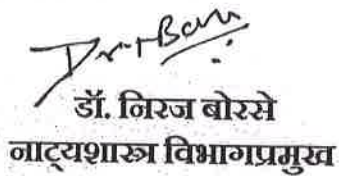 डॉ. निरज बोरसे
नाट्यशास्त्र विभागप्रमुख